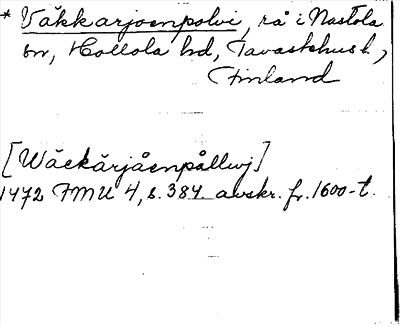 * Väkkärjoenpolvi, rå i Nastola
sn, Hollola hd, Tavastehus l.,
Finland
[Wäckärjåenpållwj]
1472 FMU 4, s. 384 avskr. fr. 1600-t.